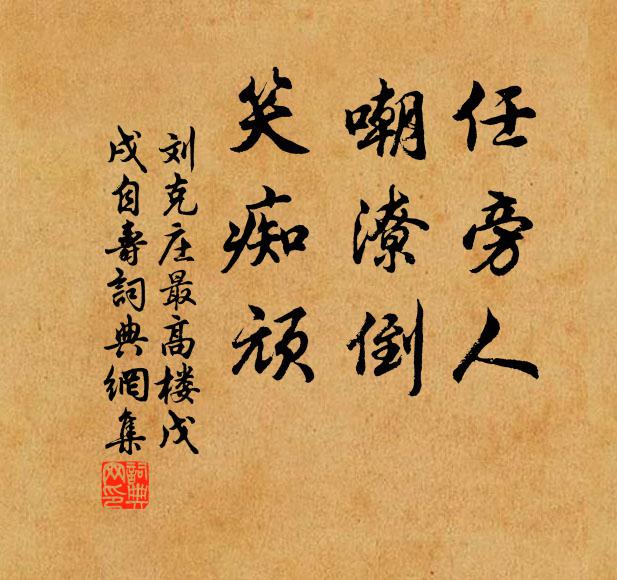 任旁人
嘲潦倒
笑痴顽
刘克庄最高楼戊
戌自寿詞典網集
詞典
网印